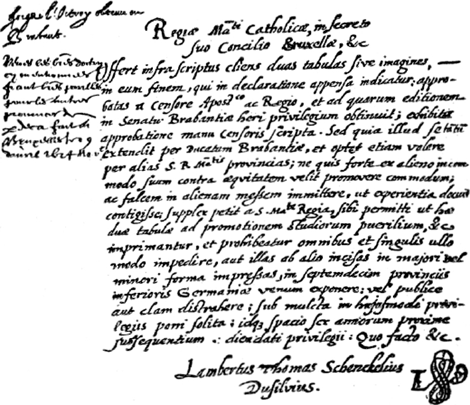 Regiæ Ma.ti Catholicæ, in secreto
suo Concilio Bruxellæ, &c
Offert infra scriptus cliens duas tabulas sive imagines,
in eum finem, qui in declaratione appensa indicatur, appro-
batas a Censore Apos.co ac Regio, et ad quarum editionem
in Senatu Brabantiæ heri privilegium obtinuit; exhibita
approbatione manu Censoris scripta. Sed quia illud se tãtũ
extendit per Ducatum Brabantiæ, et optet etiam valere
per alias S. R. Ma.tis provincias; ne quis forte ex alieno incom
modo suum contra æquitatem velit promovere commodum;
ac falcem in alienam messem immittere, ut experientia docuit
contigisse; supplex petit a S. Ma.te Regia, sibi permitti ut hæ
duæ tabulæ ad promotionem studiorum puerilium, &c
imprimantur, et prohibeatur omnibus et singulis ullo
modo impedire, aut illas ab alio incisas in majori vel
minori forma impressas, in septemdecim provinciis
inferioris Germaniæ venum exponere; vel publice
aut clam distrahere; sub mulcta in hujusmodi privi-
legiis poni solita; idq; spacio sex annorum proxime
subsequentium a die dati privilegii: Quo facto &c.
Lambertus Thomas Schenckelius
Dusilvius.